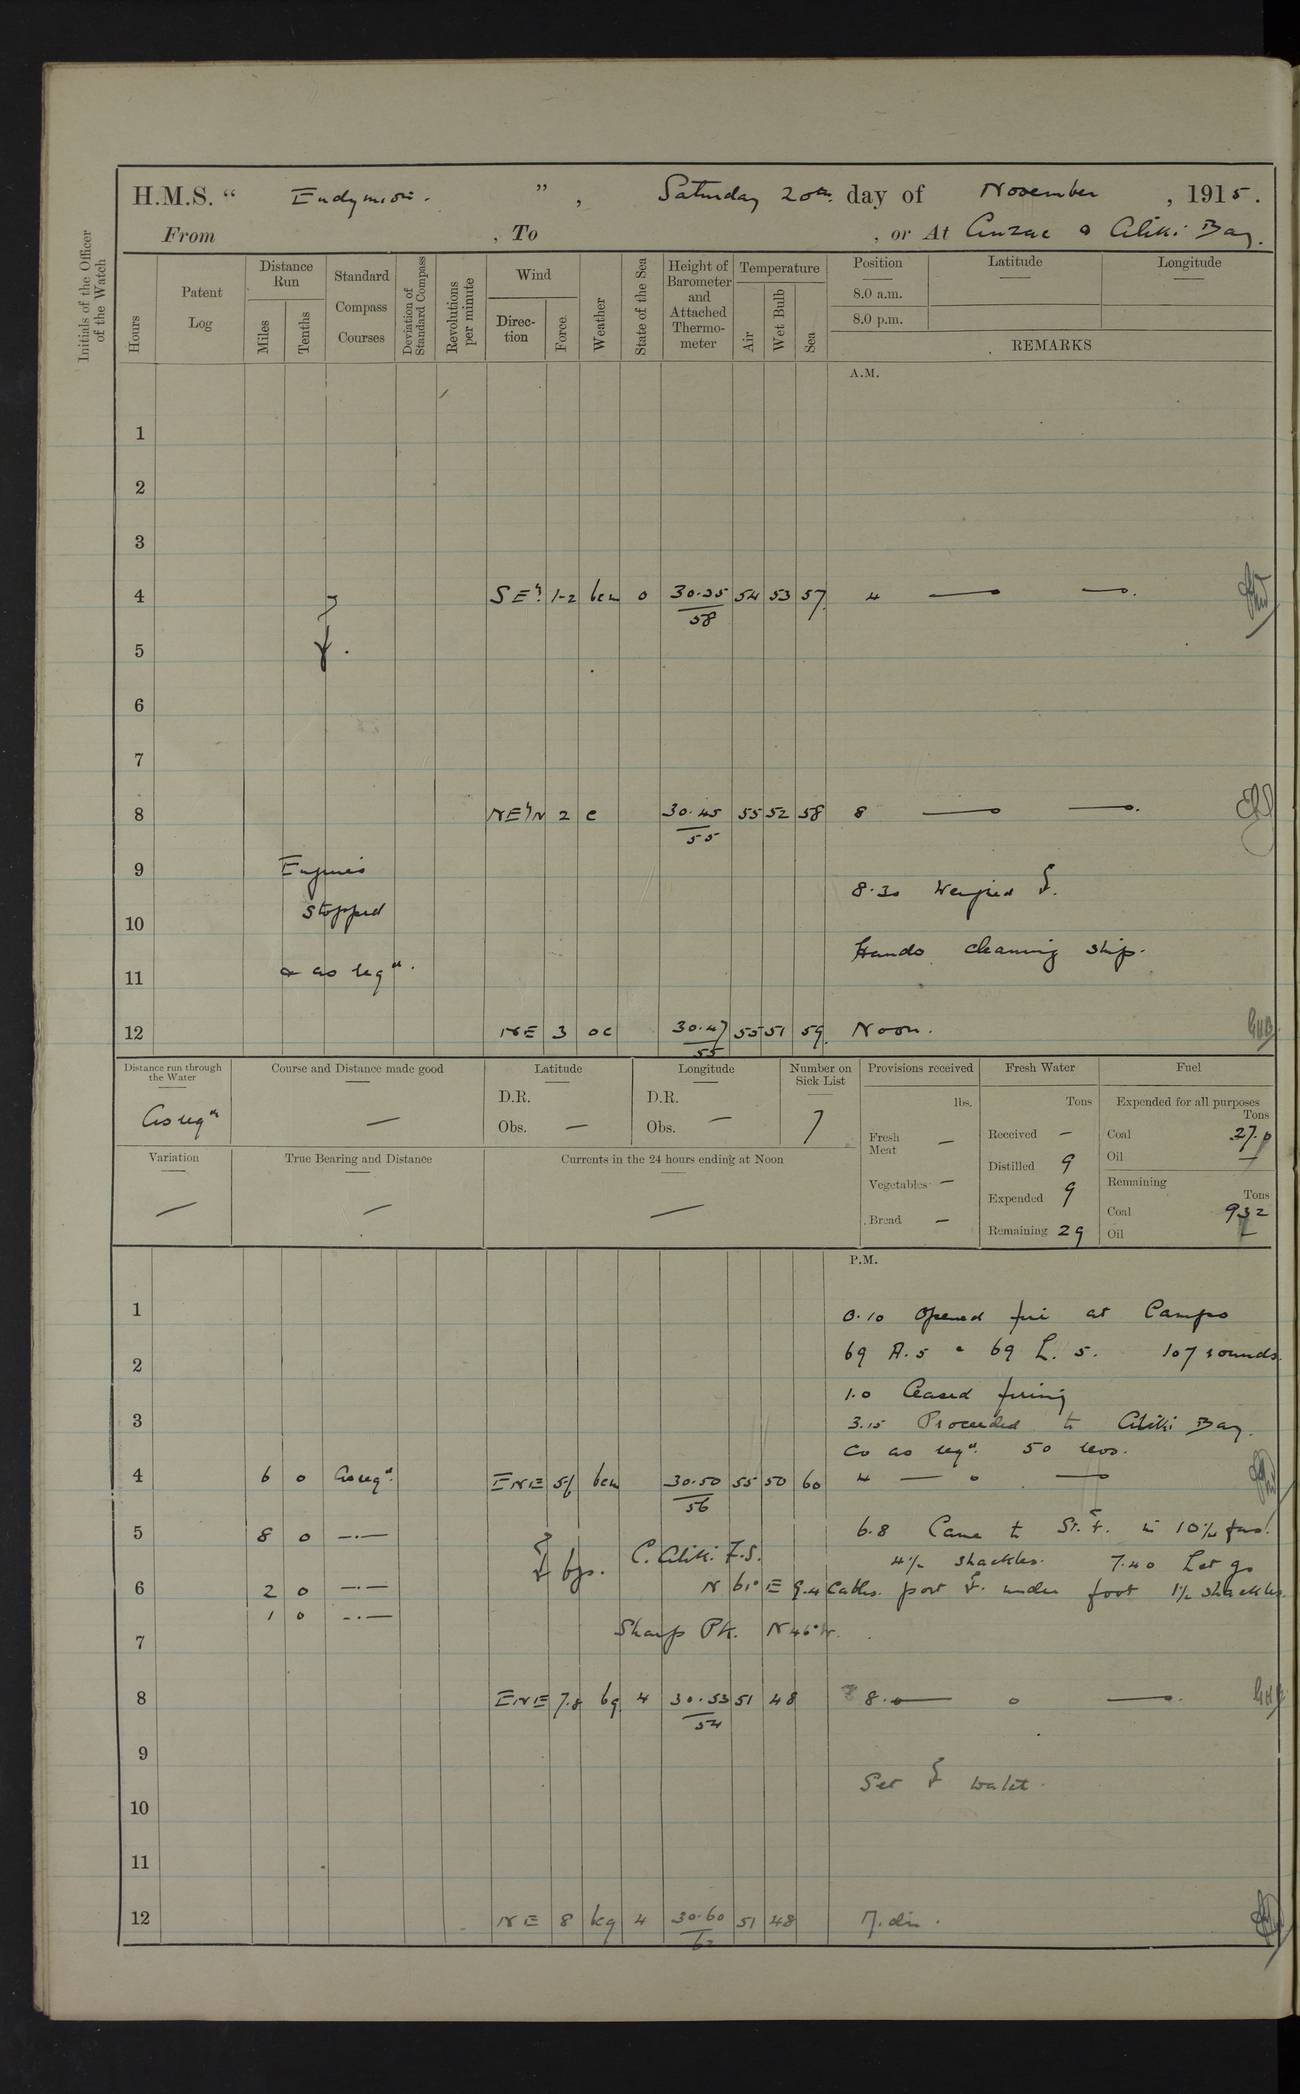 H.M.S. "Endymion.", Saturday 20th. day of November, 1915.
From , To , or At Anzac & Aliki Bay.
Initials of the Officer of the Watch
Hours
Patent Log
Distance Run
Miles
Tenths
Standard Compass Courses
Deviation of Standard Compass
Revolutions per minute
Wind
Direction
Force
Weather
State of the Sea
Height of Barometer and Attached Thermometer
Temperature
Air
Wet Bulb
Sea
Position
Latitude
Longitude
8.0 a.m.
8.0 p.m.
REMARKS
A.M.
1
2
3
4 SE'ly 1-2 bcm 0 30.35/58 54 53 57 4 — —.
5
6
7
8 NE'N 2 c 30.45/55 55 52 58 8 — —.
9 Engines
8.30 Weighed
10 stopped
Hands cleaning ship.
11 & as reqd.
12 NE 3 oc 30.47/55 55 51 59 Noon.
Distance run through the Water
As reqd
Course and Distance made good
—
Latitude
D.R.
Obs. —
Longitude
D.R.
Obs. —
Number on Sick List
7
Provisions received
lbs.
Fresh Meat —
Vegetables —
Bread —
Fresh Water
Tons
Received —
Distilled 9
Expended 9
Remaining 29
Fuel
Expended for all purposes
Tons
Coal 27.0
Oil —
Remaining
Tons
Coal 932
Oil —
Variation
—
True Bearing and Distance
—
Currents in the 24 hours ending at Noon
—
P.M.
1
0.10 Opened fire at Camps
69 A.5 & 69 L.5. 107 rounds.
2
1.0 Ceased firing
3
3.15 Proceeded to Aliki Bay.
Co as reqd. 50 revs.
4 6 0 As reqd. ENE 5-6 bcm 30.50/56 55 50 60 4 — o —
5 8 0 —.—
6.8 Came to St. in 10½ fms.
bgs. C. Aliki F.S.
4½ shackles. 7.40 Let go
6 2 0 —.—
N 61° E 9.4 Cables. port under foot 1½ shackles.
1 0 —.—
7 Sharp Pk. N 46° W.
8 ENE 7.8 bq 4 30.53/54 51 48 8. — o —.
9
Set watch.
10
11
12 NE 8 bq 4 30.60 51 48 M.dn.